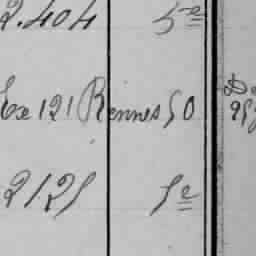 2.404 5e
Ex 121 Rennes 50
2125 5e